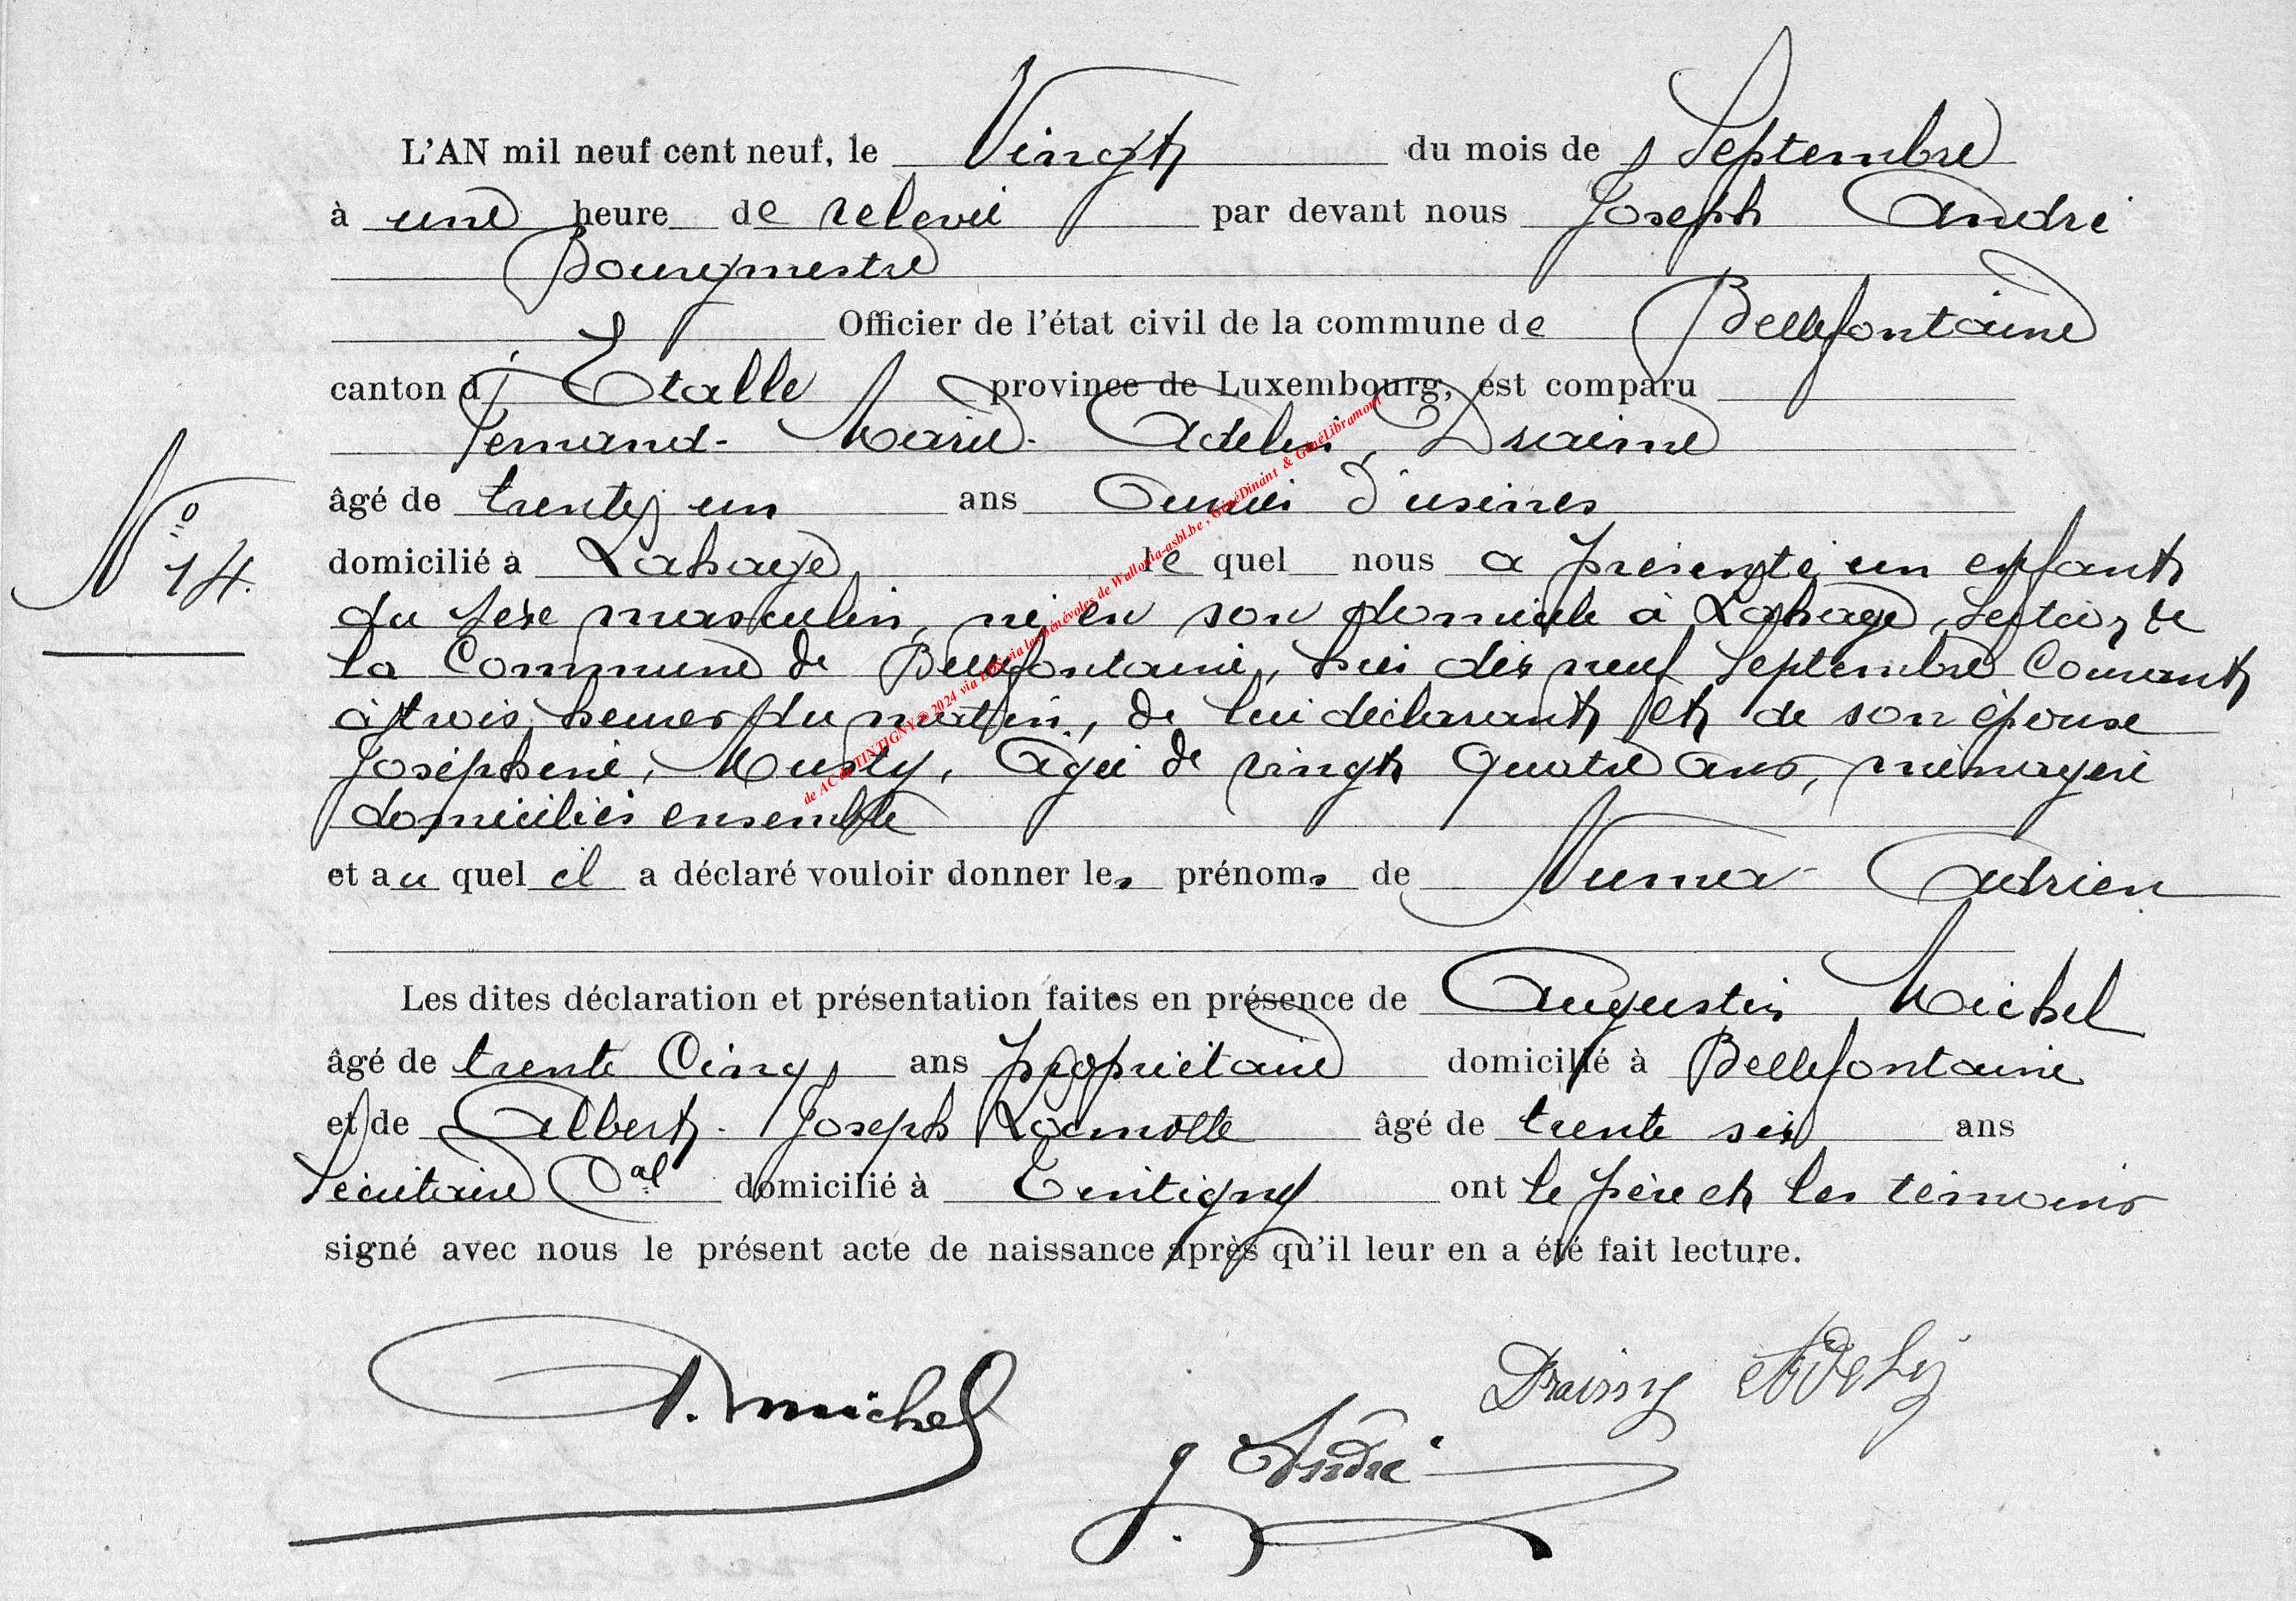 L'AN mil neuf cent neuf, le Vingt du mois de Septembre
à une heure de relevée par devant nous Joseph André
Bourgmestre
Officier de l'état civil de la commune de Bellefontaine
canton d'Etalle province de Luxembourg, est comparu
Fernand-Marie-Adelin Draime
âgé de trente un ans Ouvrier d'usines
domicilié à Lahage le quel nous a présenté un enfant
du sexe masculin, né en son domicile à Lahage, section de
la Commune de Bellefontaine, hier dix neuf Septembre Courant
à trois heures du matin, de lui déclarant et de son épouse
Joséphine, Musty, Agée de vingt quatre ans, ménagère
domiciliés ensemble
et au quel il a déclaré vouloir donner les prénoms de Numa-Adrien
Les dites déclaration et présentation faites en présence de Augustin Michel
âgé de trente Cinq ans propriétaire domicilié à Bellefontaine
et de Albert-Joseph Lamotte âgé de trente six ans
Secrétaire Cal domicilié à Tintigny ont le père et les témoins
signé avec nous le présent acte de naissance après qu'il leur en a été fait lecture.
No 14.
A. Michel
J. André
Draime Adelin
de AC de TINTIGNY © 2024 via LDS via les bénévoles de Wallonia-asbl.be, GénéDinant & GénéLibramont